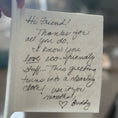 Hi Friend!
Thanks for
all you do.
I know you
love eco-friendly
stuff - This greeting
turns into a cleaning
cloth!
♡ Buddy